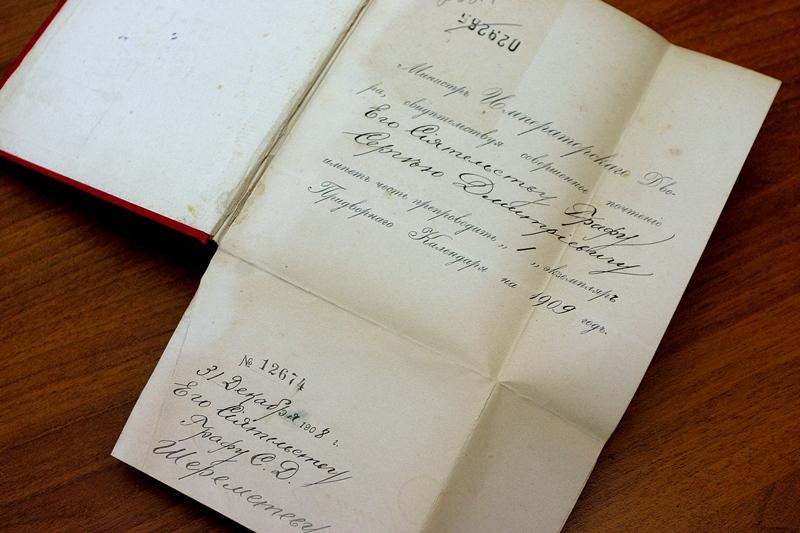 П2928.
Министръ Императорскаго Дво-
ра, свидѣтельствуя совершенное почтеніе
Его Сіятельству Графу
Сергѣю Дмитріевичу
имѣетъ честь препроводить „ 1 „ экземпляръ
Придворнаго Календаря на 1909 годъ.
№ 12674
31 Декабря 1908 г.
Его Сіятельству
Графу С. Д.
Шереметеву